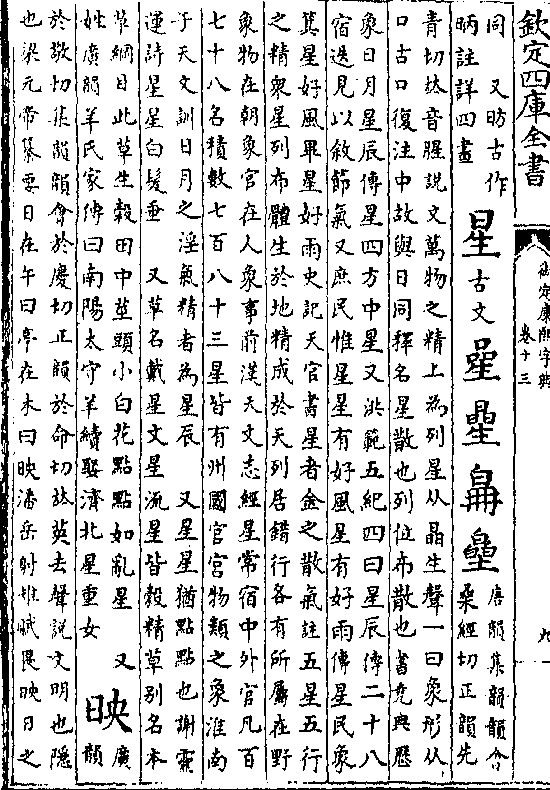 欽定四庫全書
御定康熙字典
卷十三
九
同　又昉古作
昞註詳四畫
星古文曐
唐韻集韻韻會
桑經切正韻先
青切𠀤音腥説文萬物之精上為列星从晶生聲一曰象形从
口古口復注中故與日同釋名星散也列位布散也書堯典歷
象日月星辰傳星四方中星又洪範五紀四曰星辰傳二十八
宿迭見以敘節氣又庶民惟星星有好風星有好雨傳星民象
箕星好風畢星好雨史記天官書星者金之散氣註五星五行
之精衆星列布體生於地精成於天列居錯行各有所屬在野
象物在朝象官在人象事前漢天文志經星常宿中外官凡百
七十八名積數七百八十三星皆有州國官宮物類之象淮南
子天文訓日月之淫氣精者為星辰　又星星猶點點也謝靈
運詩星星白髮垂　又草名戴星文星流星皆穀精草别名本
草綱目此草生穀田中莖頭小白花點點如亂星　又
姓廣韻羊氏家傳曰南陽太守羊續娶濟北星重女
映
廣
韻
於敬切集韻韻會於慶切正韻於命切𠀤英去聲説文明也隱
也梁元帝纂要日在午曰亭在未曰映潘岳射雉賦畏映日之